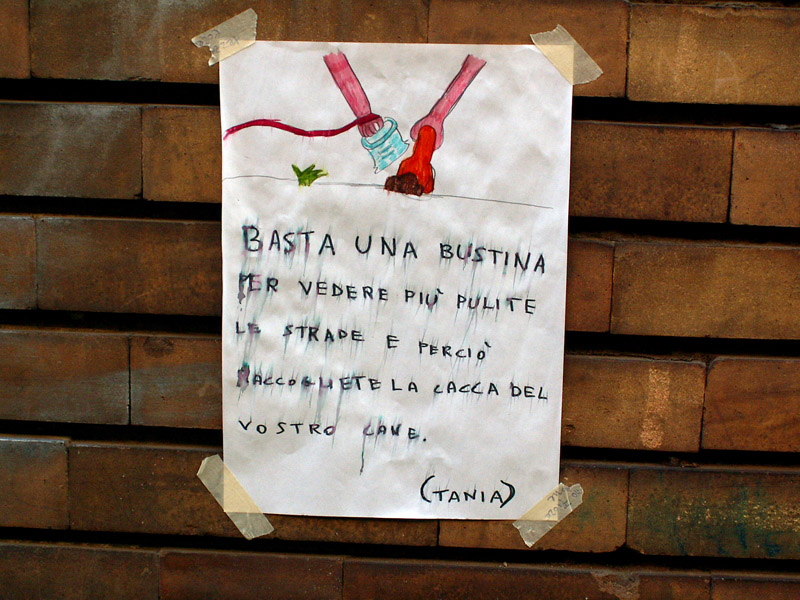 BASTA UNA BUSTINA
PER VEDERE PIÙ PULITE
LE STRADE E PERCIÒ
RACCOGLIETE LA CACCA DEL
VOSTRO CANE.
(TANIA)